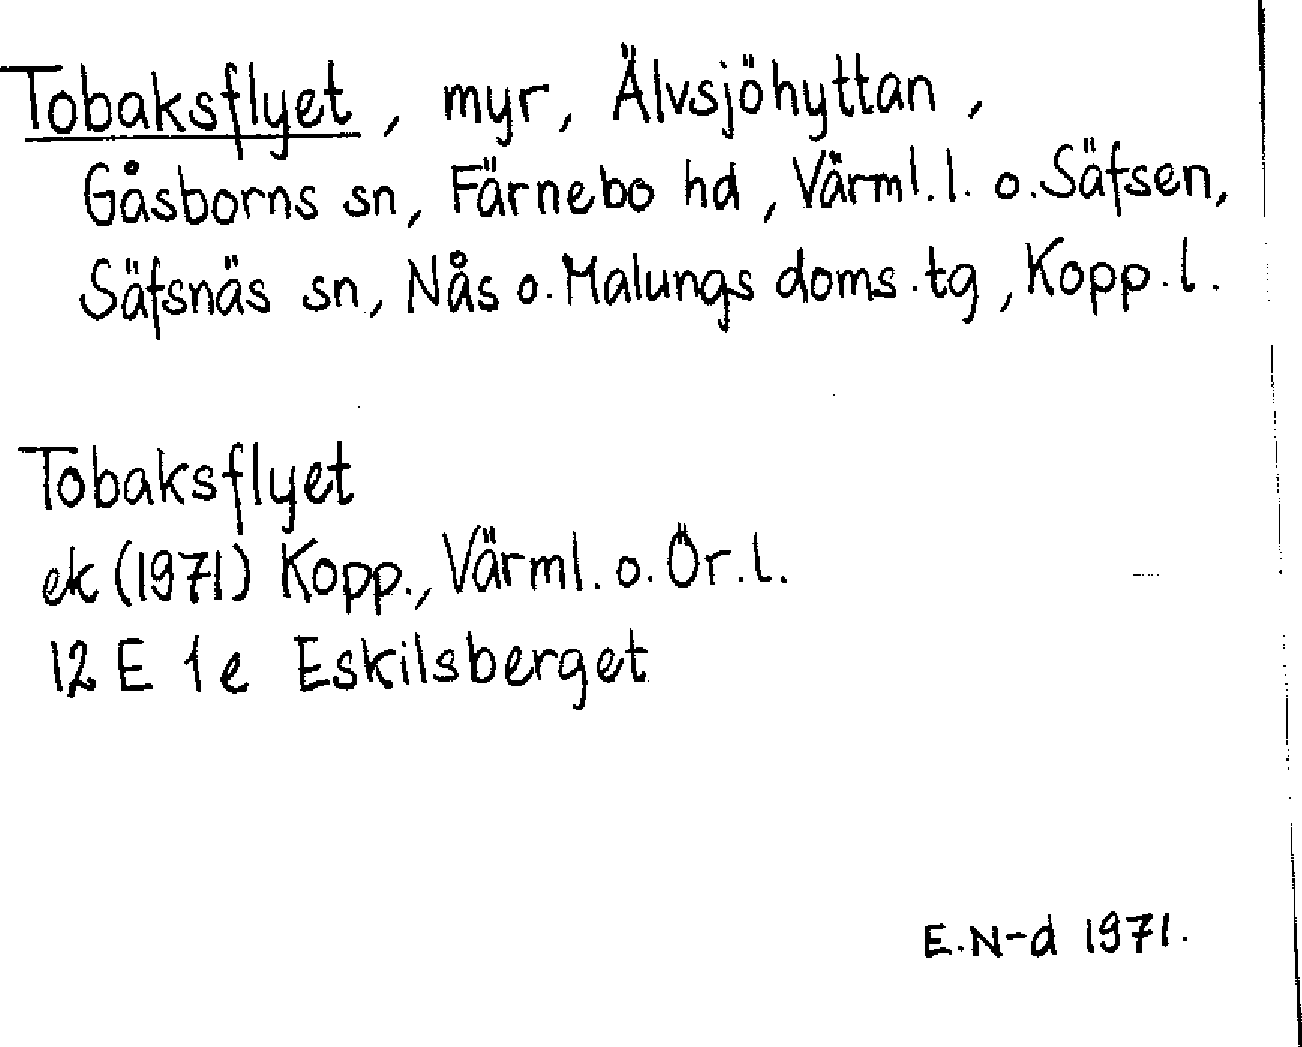 Tobaksflyet, myr, Älvsjöhyttan,
Gåsborns sn, Färnebo hd, Värml. l. o. Säfsen,
Säfsnäs sn, Nås o. Malungs doms.tg, Kopp. l.
Tobaksflyet
ek (1971) Kopp., Värml. o. Ör. l.
12 E 1 e Eskilsberget
E.N-d 1971.